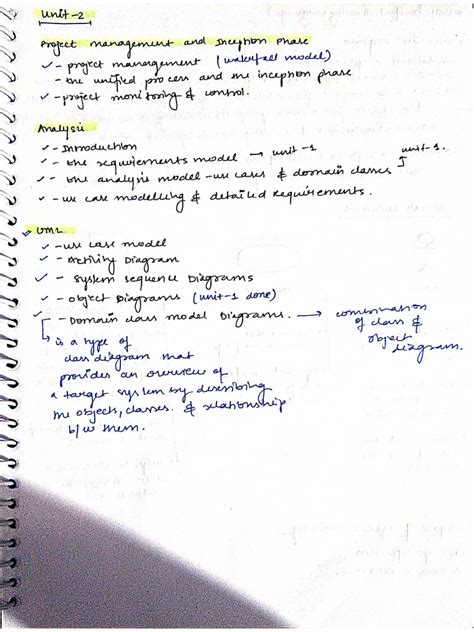 Unit-2
Project management and Inception Phase
✓ - project management (waterfall model)
- the unified process and the inception phase
✓ - project monitoring & control.
Analysis
✓ - Introduction
✓ - the requirements model → unit -1
unit-1.
✓ - the analysis model - use cases & domain classes
✓ - use case modelling & detailed requirements.
UML
✓ - use case model
✓ - Activity Diagram
✓ - System sequence Diagrams
✓ - Object Diagrams (unit-1 done)
✓ - Domain class model Diagrams. → combination
of class &
object
diagram.
is a type of
class diagram that
provides an overview of
a target system by describing
the objects, classes. & relationship
b/w them.